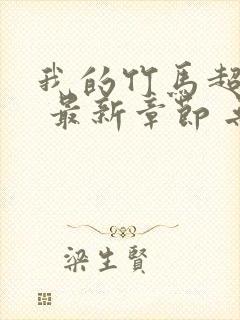 我的竹馬超
最新章節
梁生賢